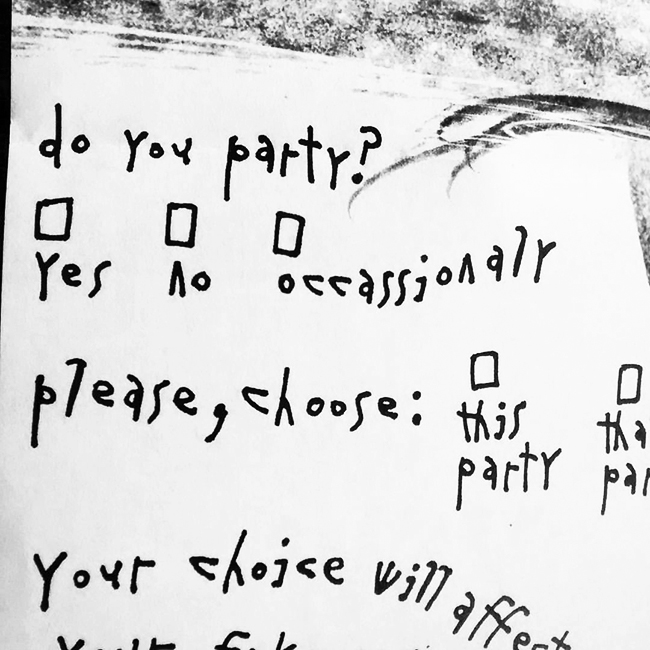 do you party?
yes no occassionaly
please, choose:
this
party
Your choice will affect